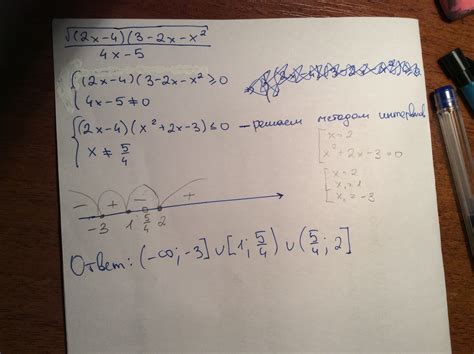 √(2x-4)(3-2x-x²
4x-5
{(2x-4)(3-2x-x²≥0
4x-5≠0
{(2x-4)(x²+2x-3)≤0 – решаем методом интервалов
x≠5/4
[x=2
x²+2x-3=0
[x=2
x₁=1
x₂=-3
- + - +
-3 1 5/4 2
Ответ: (-∞; -3] ∪ [1; 5/4) ∪ (5/4; 2]